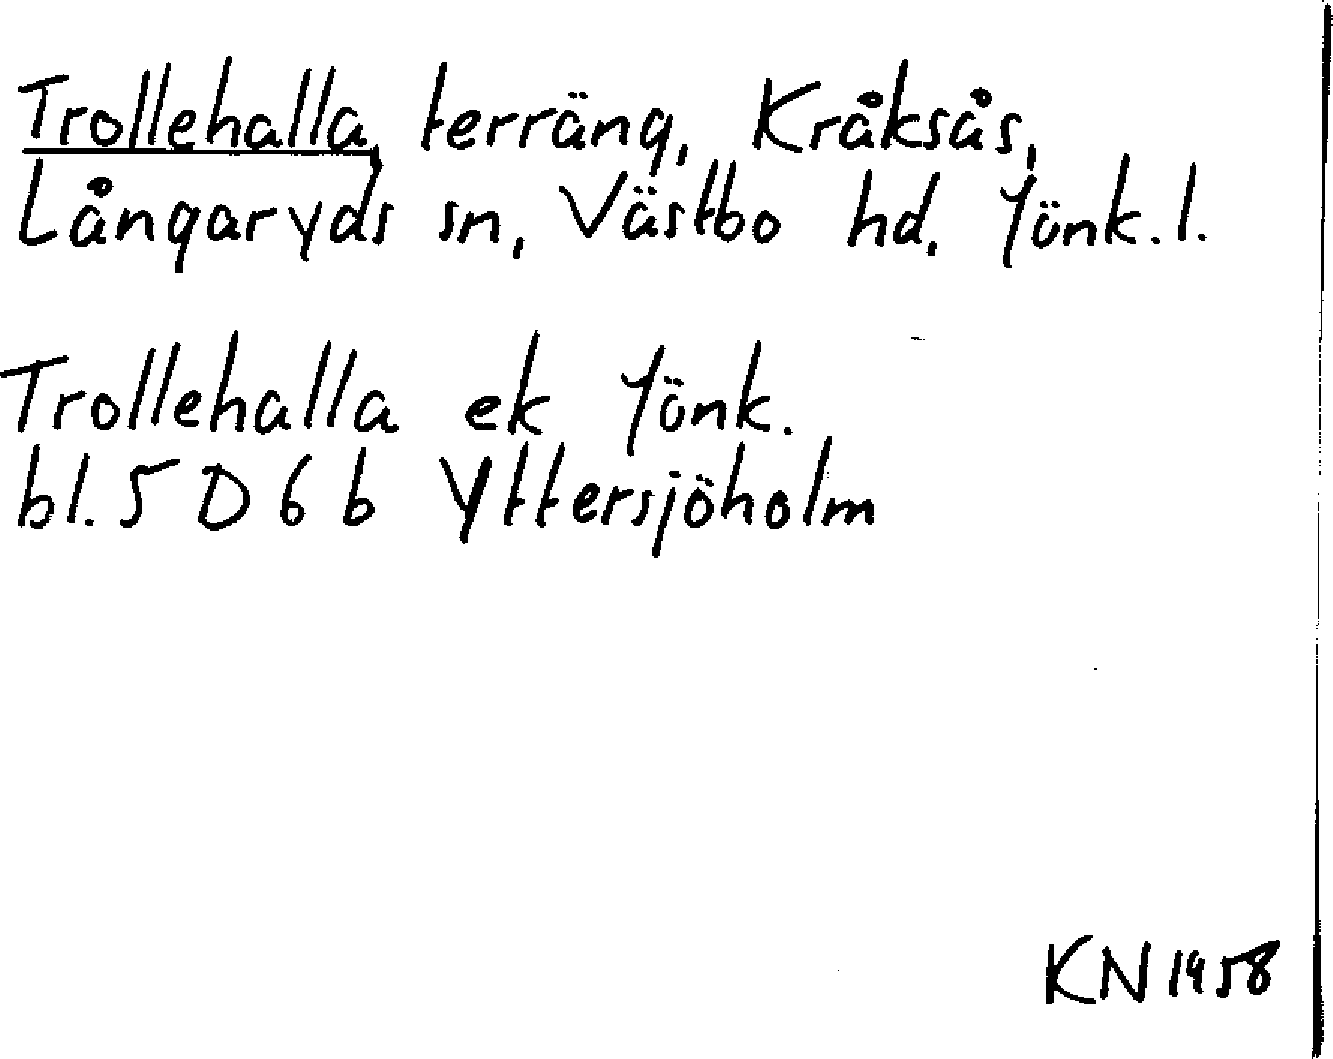 Trollehalla, terräng, Kråksås,
Långaryds sn, Västbo hd. Jönk. l.
Trollehalla ek Jönk.
bl. 5 D 6 b Yttersjöholm
KN 1958